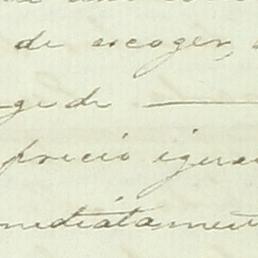 de escoger,
ge de
precio igual
mediatament